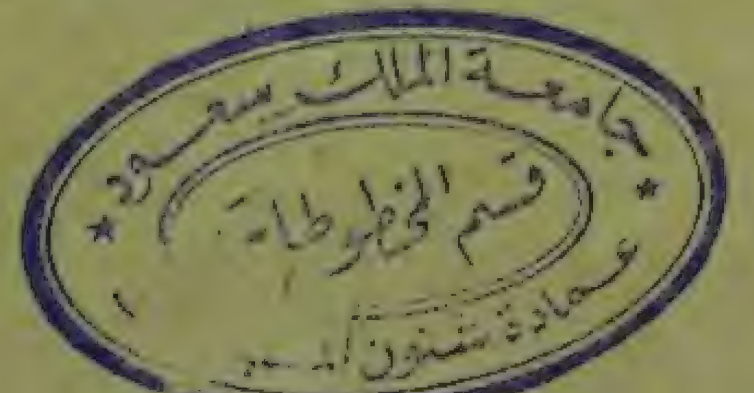 جامعة الملك سعود
قسم المخطوطات
عمادة شئون